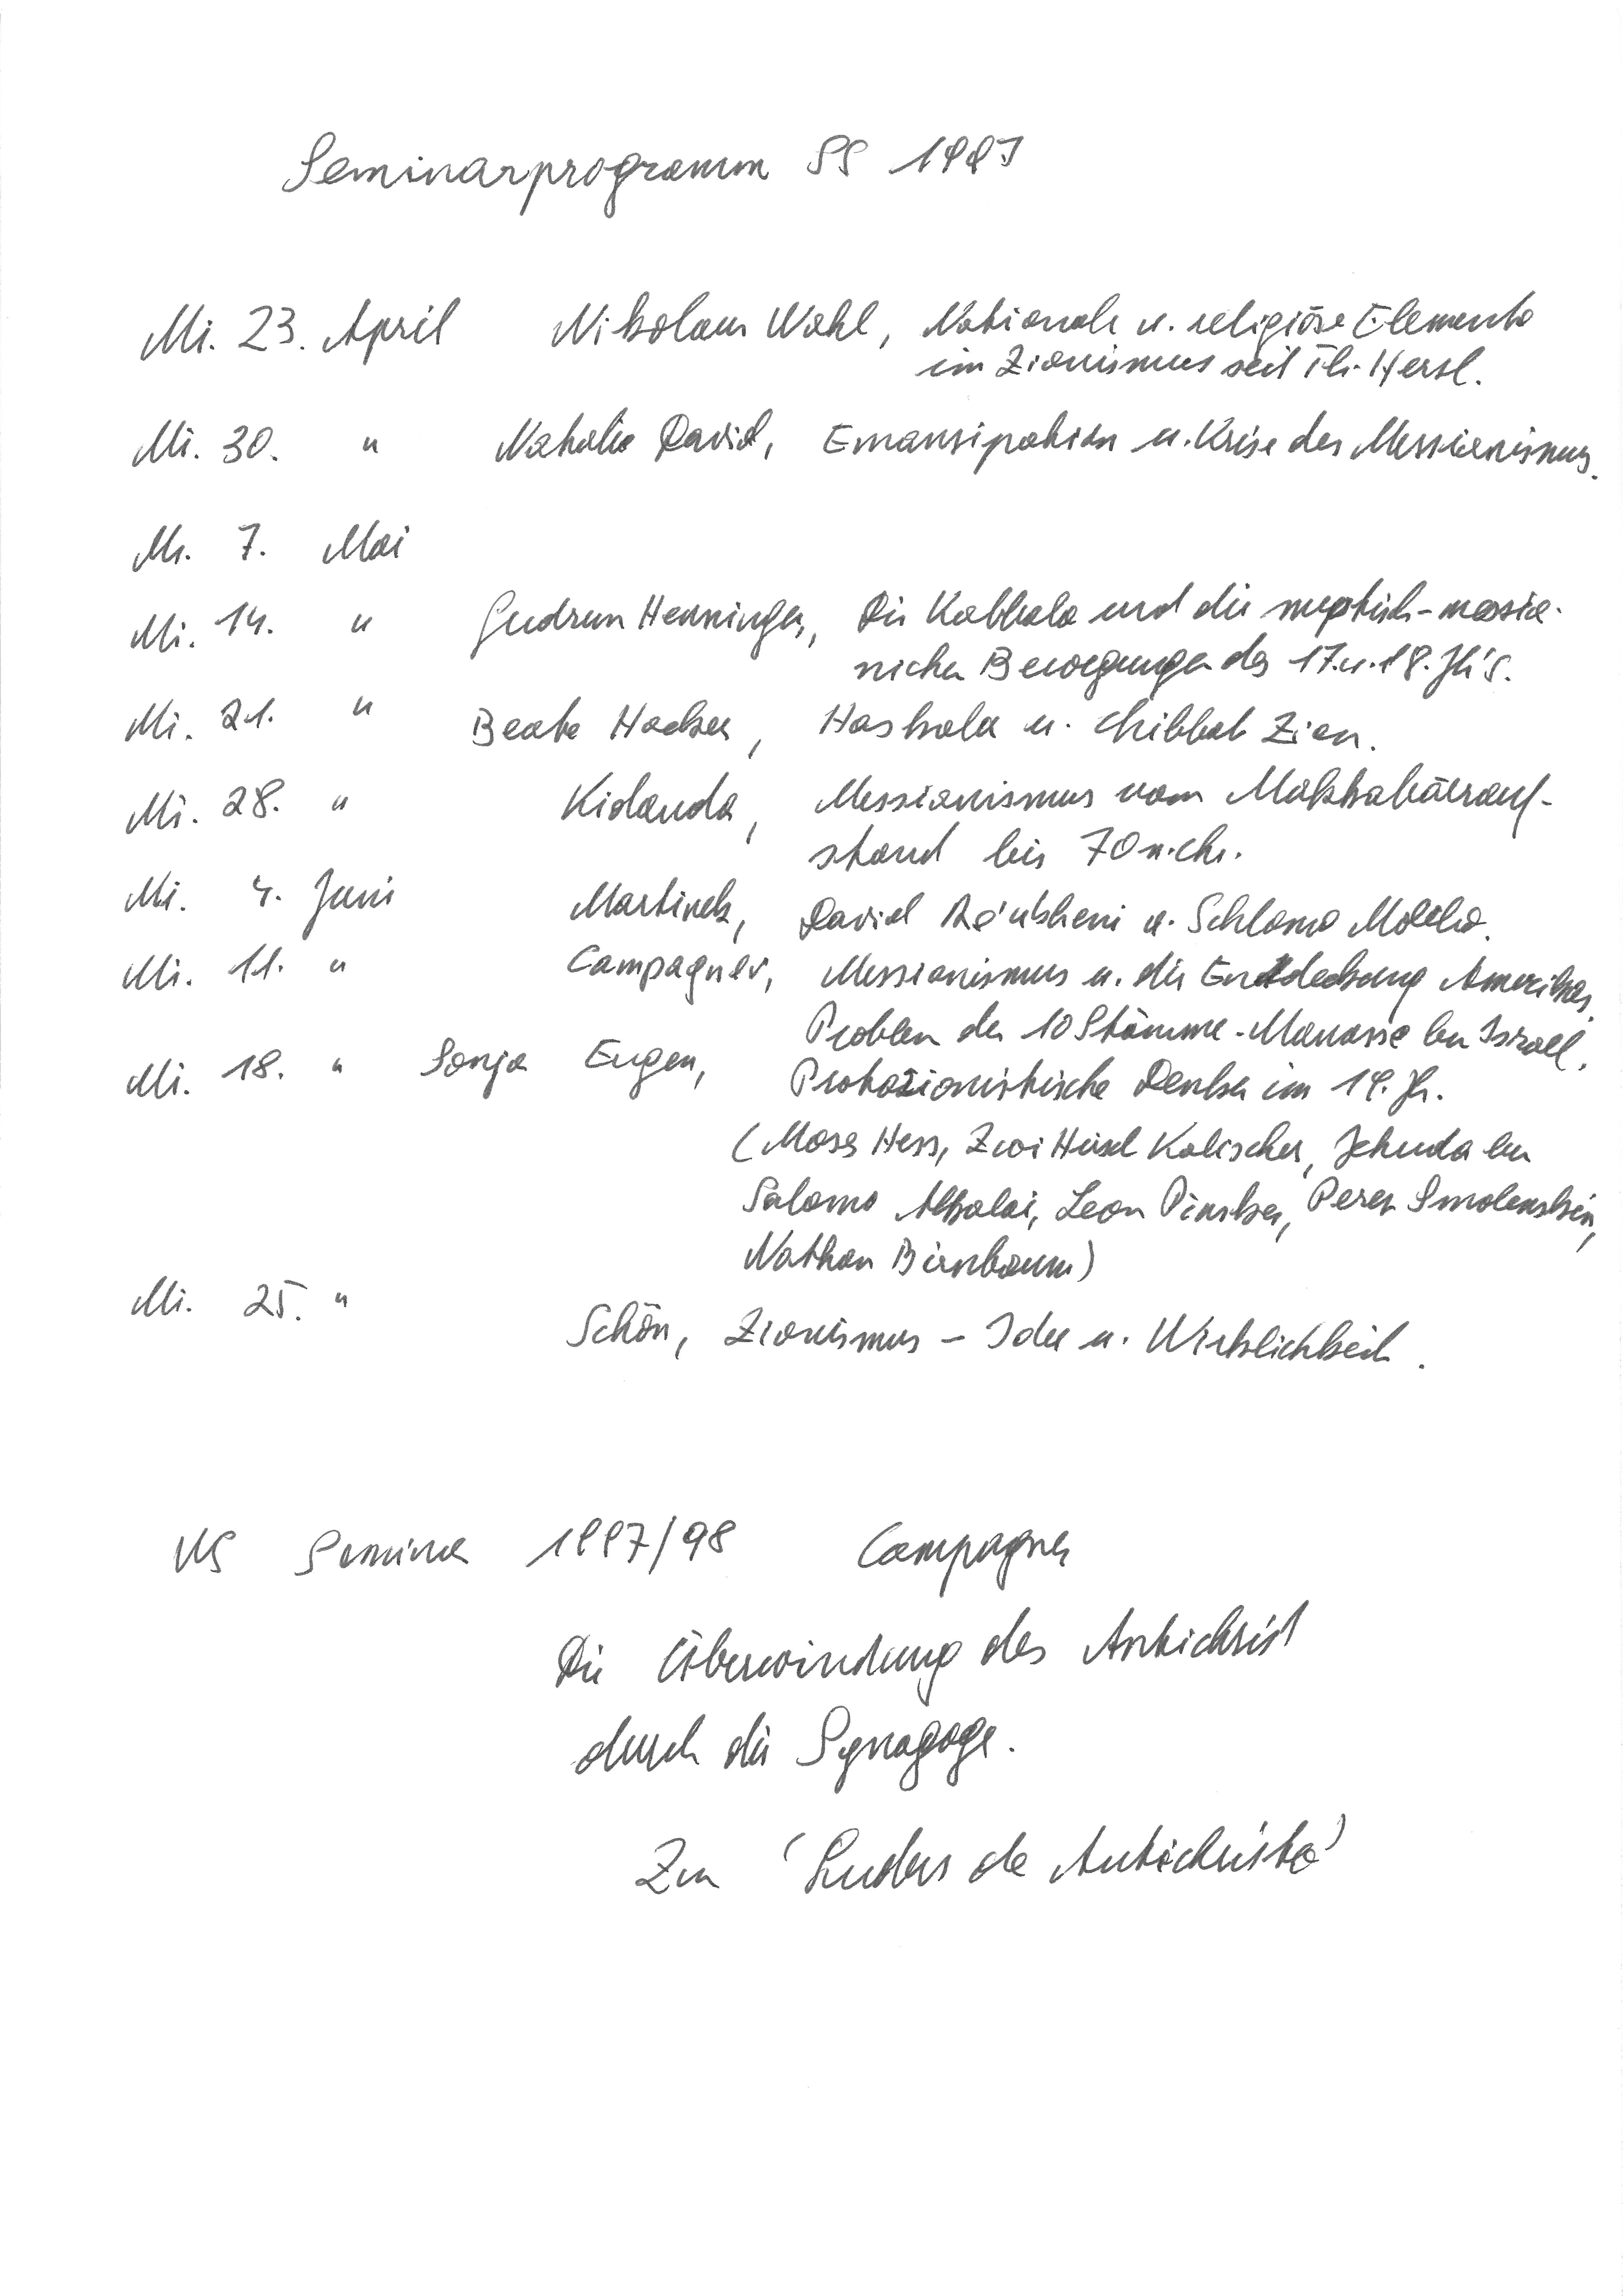 Seminarprogramm SS 1997
Mi. 23. April Nikolaus Wahl, Nationale u. religiöse Elemente
im Zionismus seit Th. Herzl.
Mi. 30. " Nathalie David, Emanzipation u. Krise des Messianismus.
Mi. 7. Mai
Mi. 14. " Gudrun Henninger, Die Kabbala und die mystisch-messia-
nischen Bewegungen des 17. u. 18. Jh's.
Mi. 21. " Beate Hacker, Haskala u. Chibbat Zion.
Mi. 28. " Kidanda, Messianismus vom Makkabäerauf-
stand bis 70 n. Chr.
Mi. 4. Juni Martinek, David Re'ubheni u. Schlomo Molcho.
Mi. 11. " Campagner, Messianismus u. die Entdeckung Amerikas.
Problem der 10 Stämme - Manasse ben Israel.
Mi. 18. " Sonja Eugen, Protozionistische Denker im 19. Jh.
(Moses Hess, Zwi Hirsch Kalischer, Jehuda ben
Salomo Alkalai, Leon Pinsker, Perez Smolenskin,
Nathan Birnbaum)
Mi. 25. "
Schön, Zionismus - Idee u. Wirklichkeit.
WS Seminar 1997/98 Campagner
Die Überwindung des Antichrist
durch die Synagoge.
Zum 'Ludus de Antichristo'